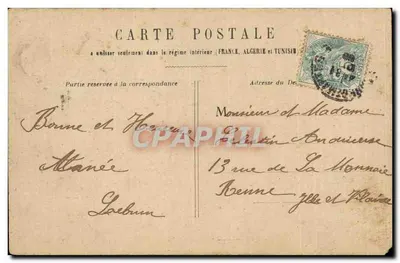 CARTE POSTALE
à utiliser seulement dans le régime intérieur (FRANCE, ALGERIE et TUNISIE
Partie réservée à la correspondance
Adresse du De
Bonne et Heureuse
Année
Monsieur et Madame
13 rue de La Monnaie
Renne
Ille et Vilaine
CPAPHIL